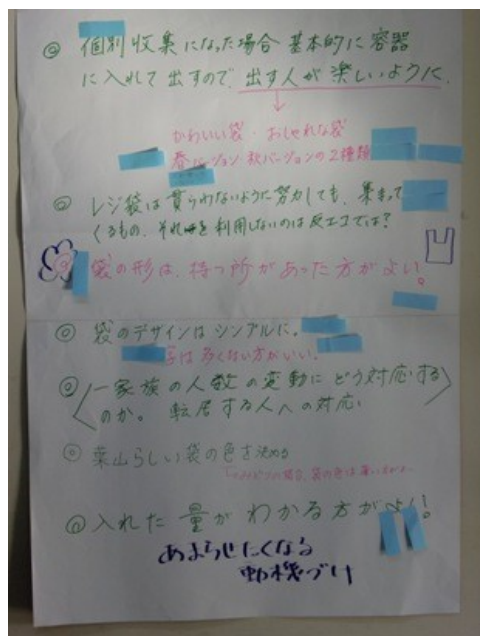 ◎ 個別収集になった場合 基本的に容器
に入れて出すので、出す人が楽しいように。
↓
かわいい袋・おしゃれな袋
春バージョン 秋バージョンの2種類
◎ レジ袋は貰らわないように努力しても、集まって
くるもの、それを利用しないのは反エコでは?
◎ 袋の形は、持つ所があった方がよい!
◎ 袋のデザインはシンプルに。
字は多くない方がいい。
◎ 一家族の人数の変動にどう対応する
のか。転居する人への対応
◎ 葉山らしい袋の色を決める
袋の色は
◎ 入れた量がわかる方がよい!
あまらせたくなる
動機づけ